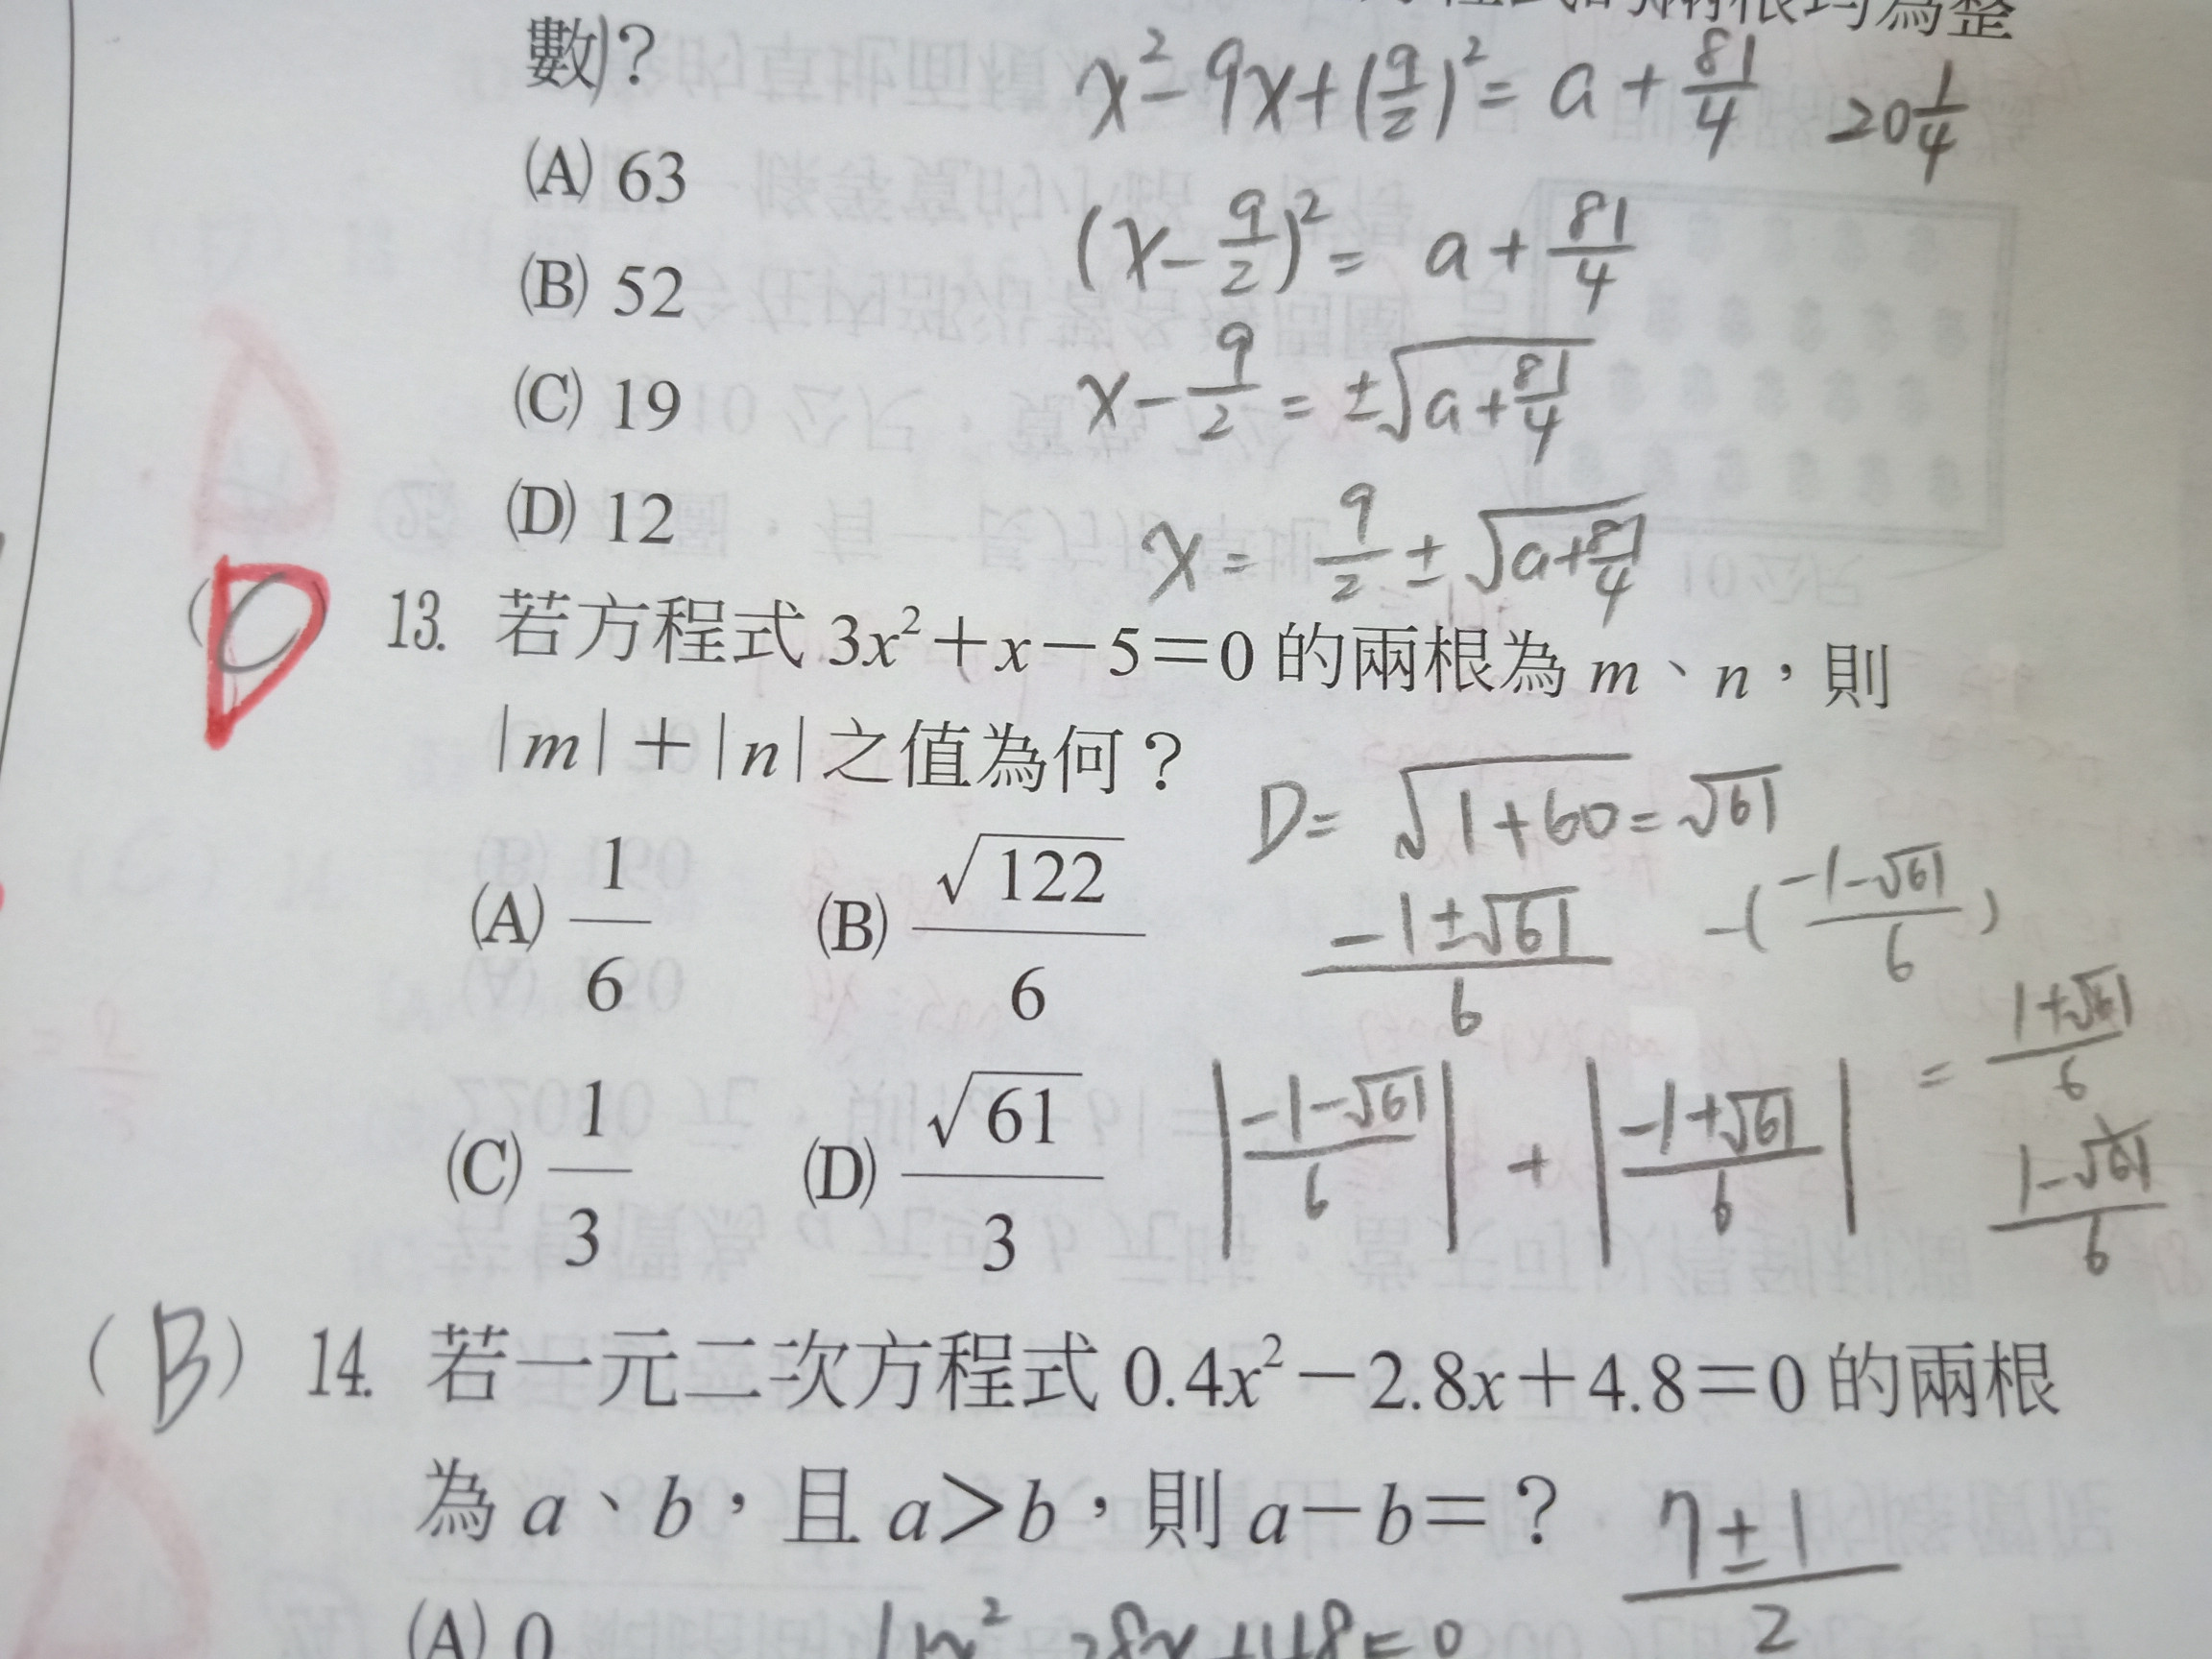 數)？
x² - 9x + (9/2)² = a + 81/4 20 1/4
(A) 63
(x - 9/2)² = a + 81/4
(B) 52
x - 9/2 = ±√(a + 81/4)
(C) 19
(D) 12
x = 9/2 ± √(a + 81/4)
(C) D 13. 若方程式 3x²＋x－5＝0 的兩根為 m、n，則
|m|＋|n| 之值為何？
D = √(1+60) = √61
(A) 1/6 (B) √122/6
(-1±√61)/6 -((-1-√61)/6)
= (1+√61)/6
(C) 1/3 (D) √61/3
|(-1-√61)/6| + |(-1+√61)/6|
(1-√61)/6
(B) 14. 若一元二次方程式 0.4x²－2.8x＋4.8＝0 的兩根
為 a、b，且 a＞b，則 a－b＝？
(7±1)/2
(A) 0